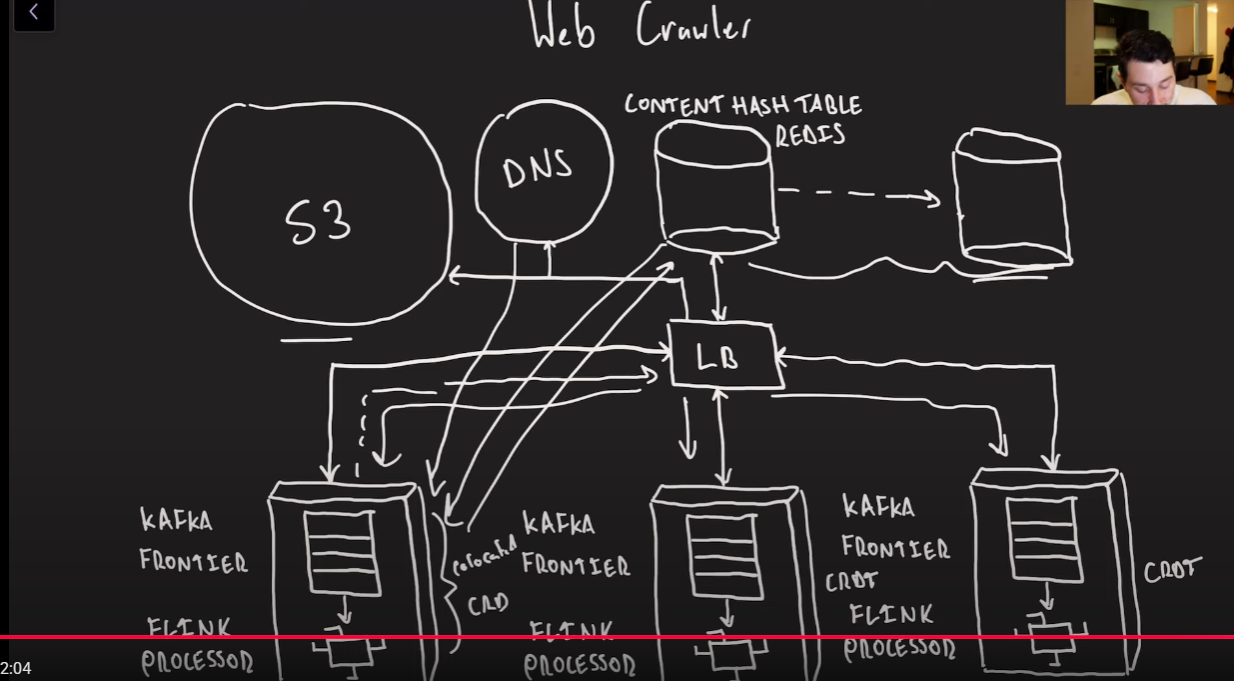 Web Crawler
CONTENT HASH TABLE
REDIS
S3
DNS
LB
KAFKA
FRONTIER
FLINK
PROCESSOR
colocated
CRD
KAFKA
FRONTIER
FLINK
PROCESSOR
CRDT
KAFKA
FRONTIER
FLINK
PROCESSOR
CRDT
2:04